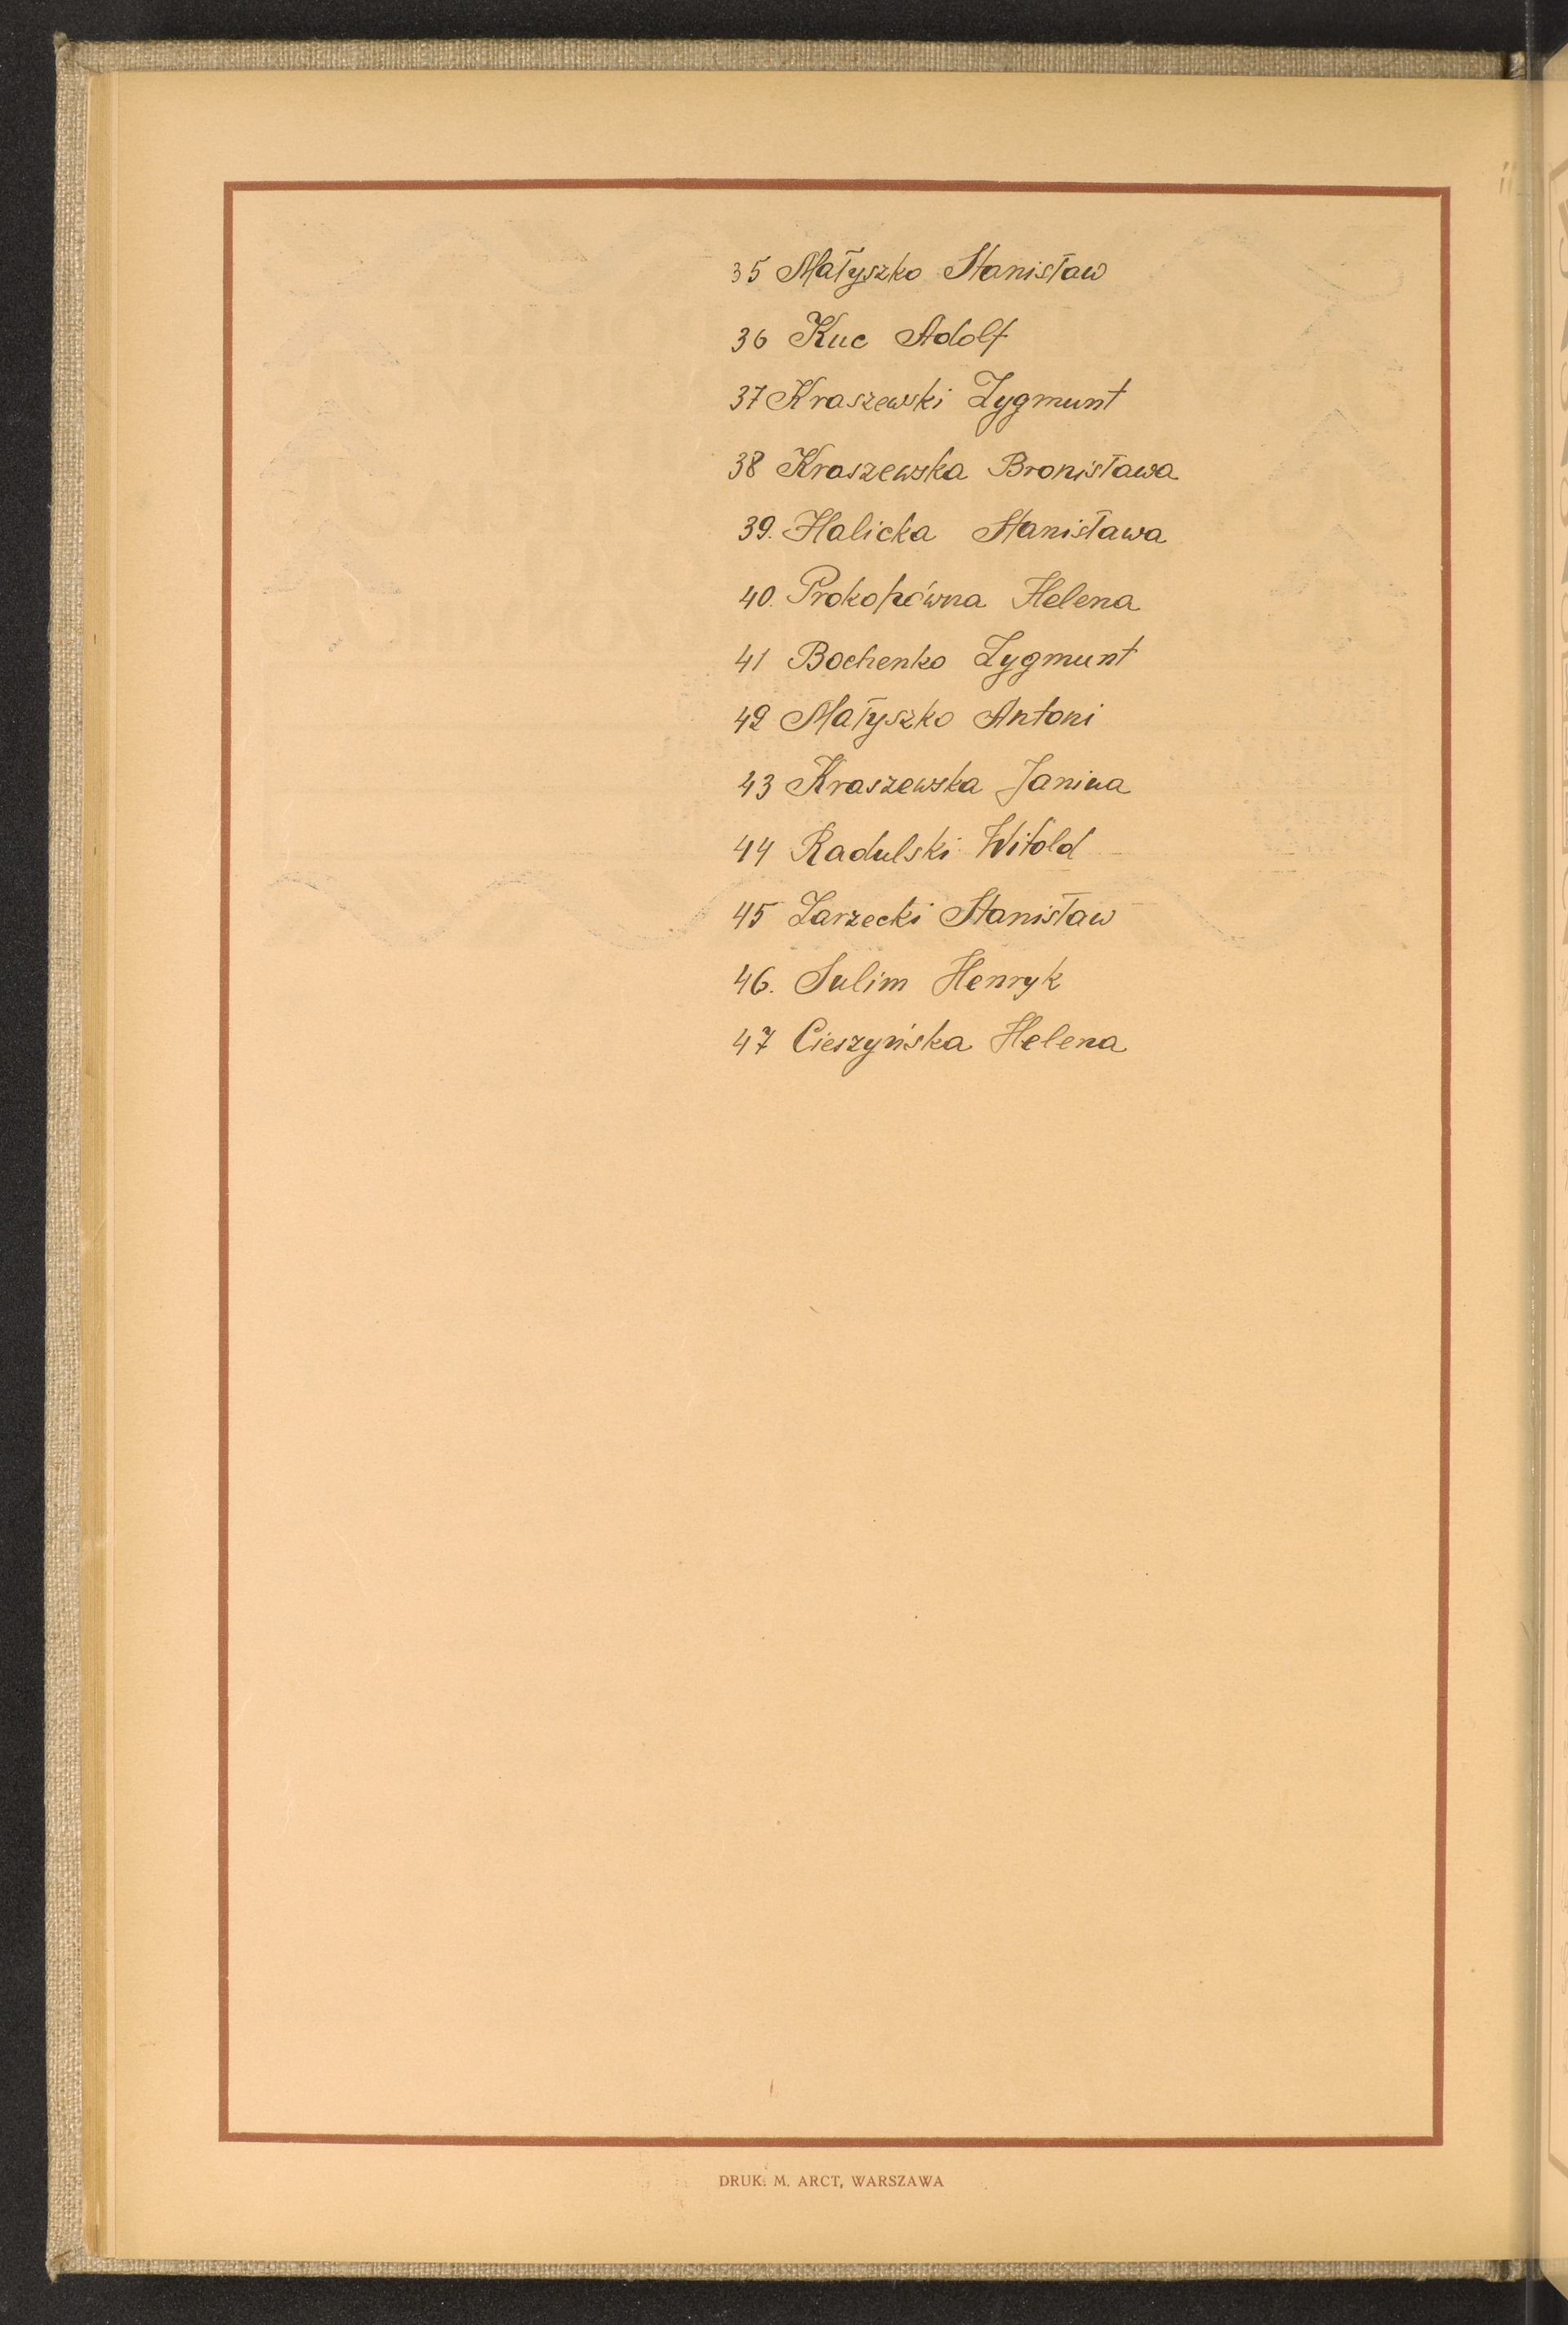 35 Małyszko Stanisław
36 Kuc Adolf
37 Kraszewski Zygmunt
38 Kraszewska Bronisława
39. Halicka Stanisława
40. Prokopówna Helena
41 Bochenko Zygmunt
42 Małyszko Antoni
43 Kraszewska Janina
44 Radulski Witold
45 Zarzecki Stanisław
46. Sulim Henryk
47 Cieszyńska Helena
DRUK. M. ARCT, WARSZAWA